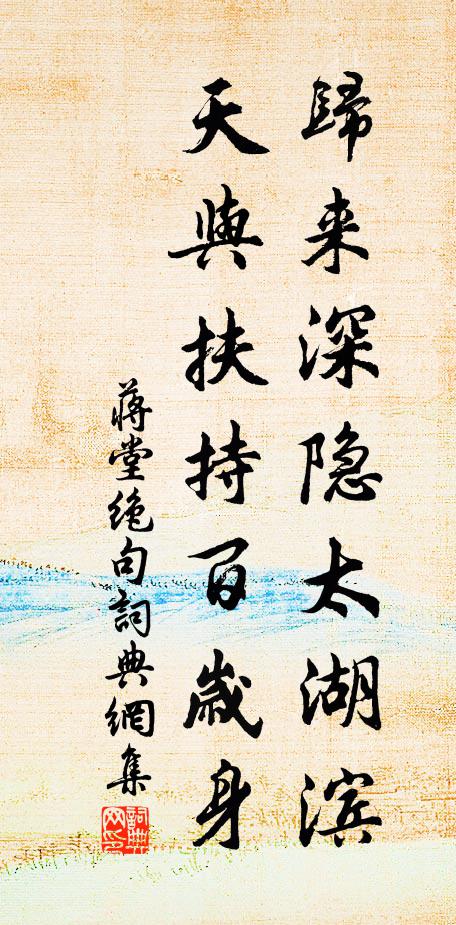 歸来深隐太湖滨
天與扶持百歲身
蒋堂绝句詞典網集
詞典网印